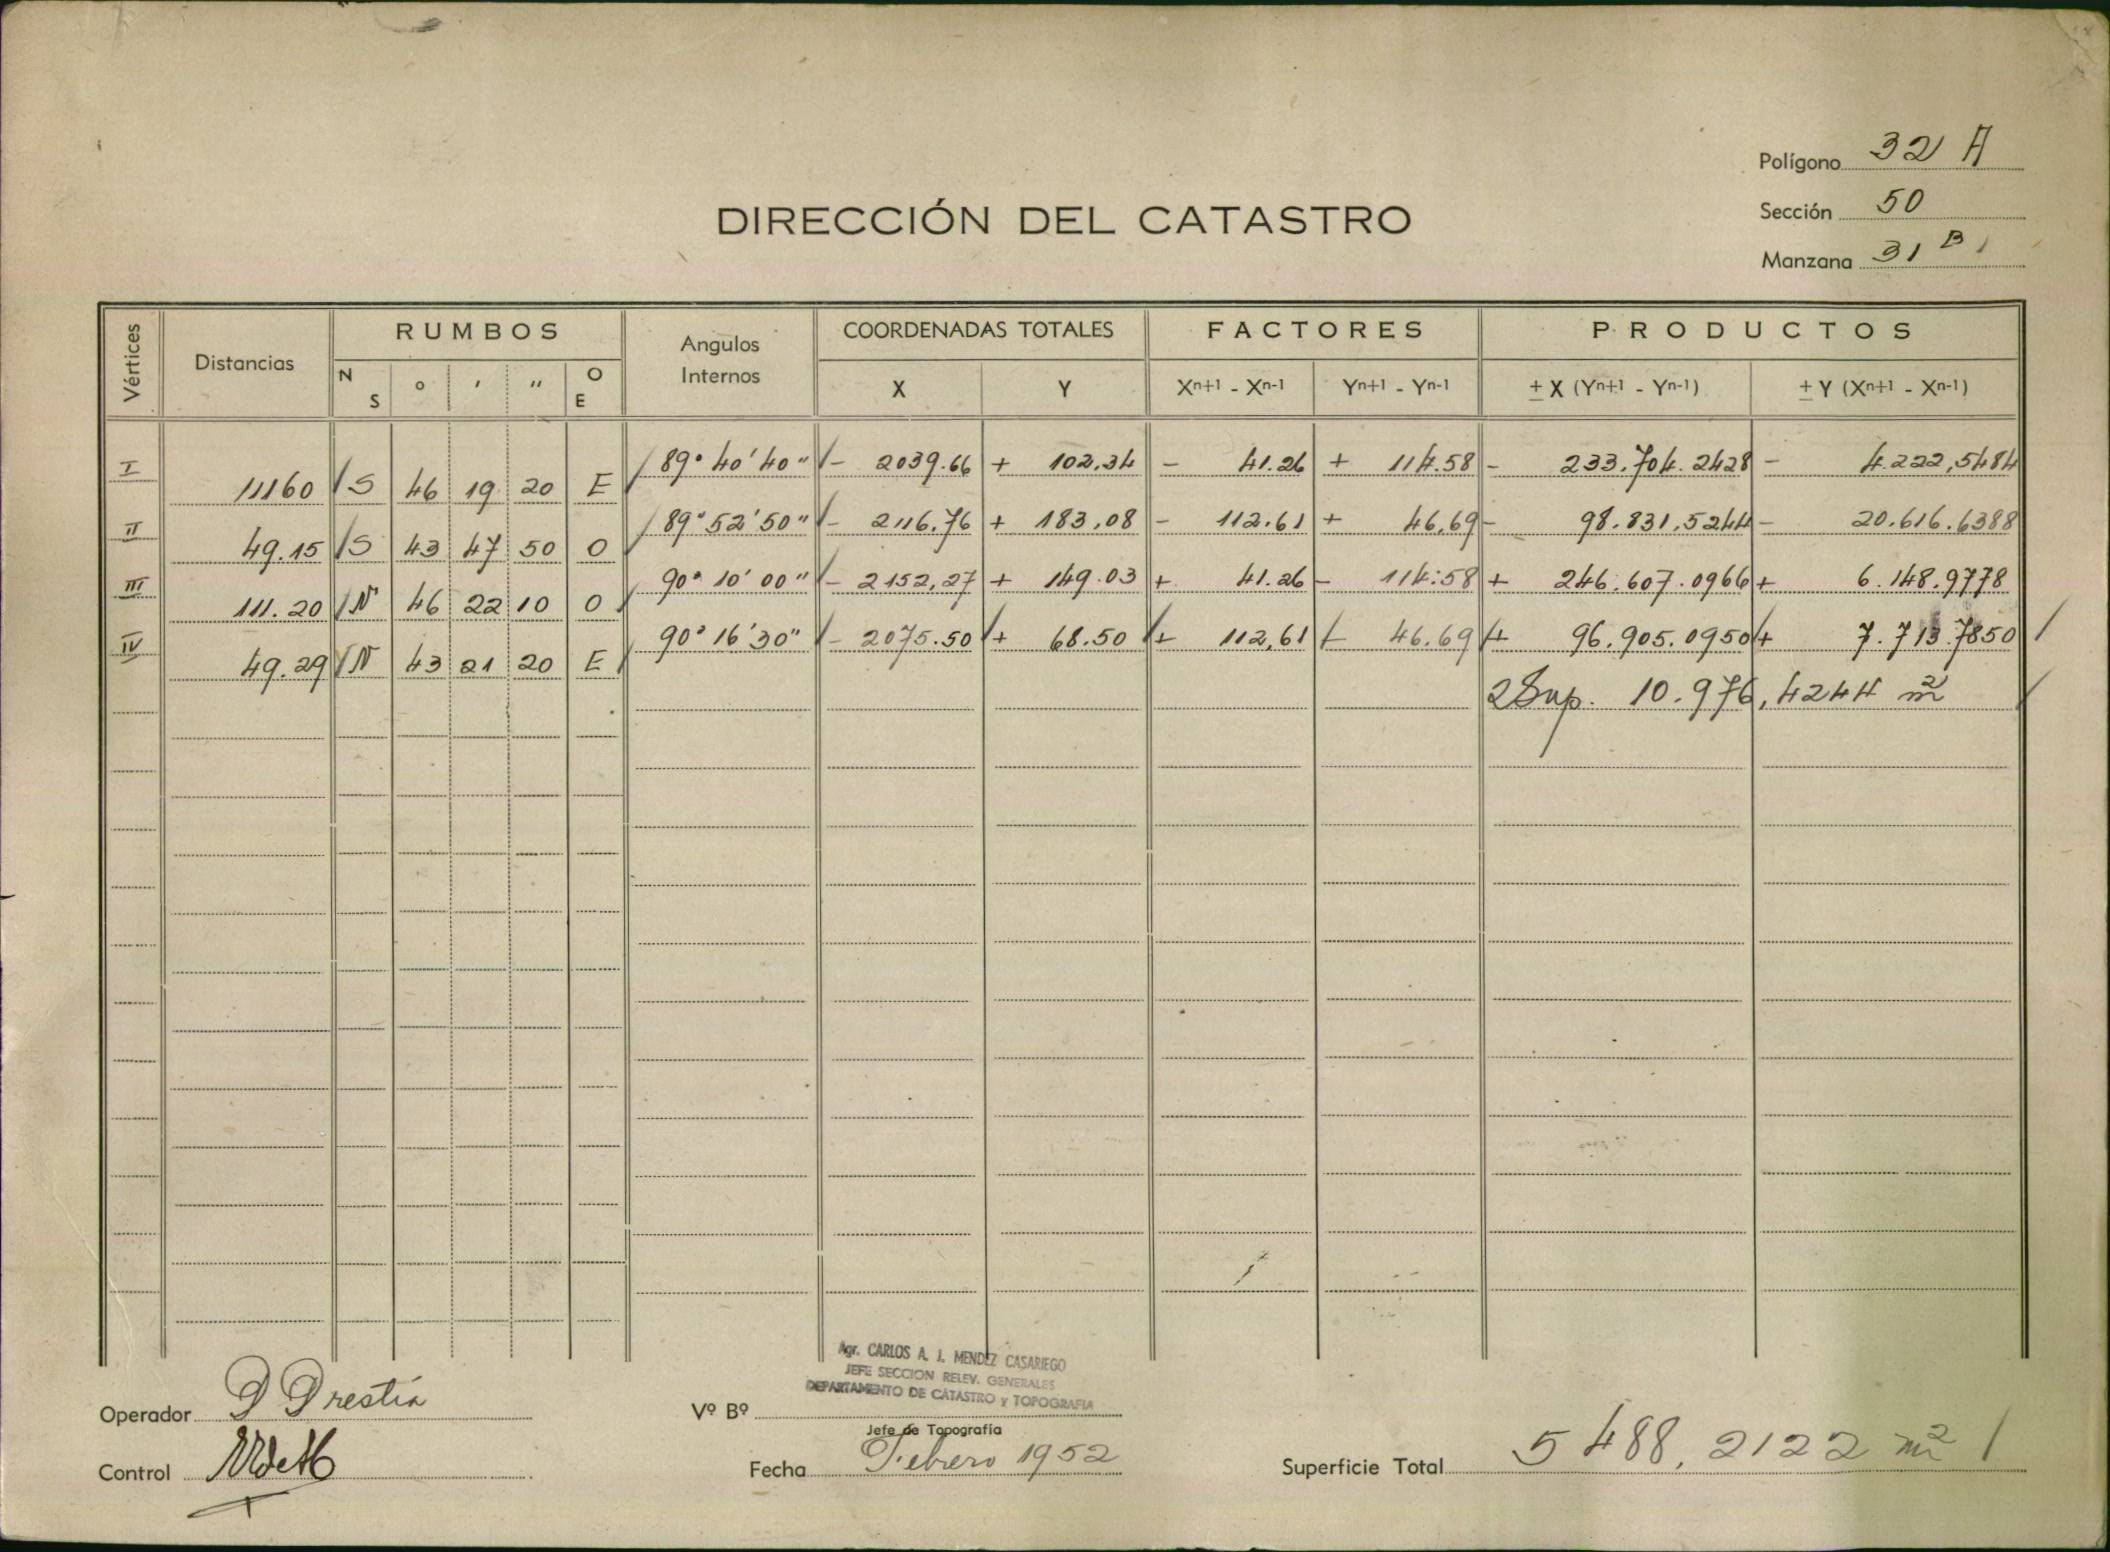 Polígono 32 A
Sección 50
Manzana 31 B
DIRECCIÓN DEL CATASTRO
Vértices Distancias RUMBOS Angulos Internos COORDENADAS TOTALES FACTORES PRODUCTOS
N S ° ' " O E X Y Xn+1 - Xn-1 Yn+1 - Yn-1 ± X (Yn+1 - Yn-1) ± Y (Xn+1 - Xn-1)
I 89° 40' 40" - 2039.66 + 102.34 - 41.26 + 114.58 - 233.704.2428 - 4.222,5484
11160 S 46 19 20 E
II 89° 52' 50" - 2116.76 + 183.08 - 112.61 + 46.69 - 98.831.5244 - 20.616.6388
49.15 S 43 47 50 O
III 90° 10' 00" - 2152,27 + 149.03 + 41.26 - 114.58 + 246.607.0966 + 6.148.9778
111.20 N 46 22 10 O
IV 90° 16' 30" - 2075.50 + 68.50 + 112,61 - 46.69 + 96.905.0950 + 7.713.7850
49.29 N 43 21 20 E
2 Sup. 10.976,4244 m²
Agr. CARLOS A. J. MENDEZ CASARIEGO
JEFE SECCION RELEV. GENERALES
DEPARTAMENTO DE CATASTRO y TOPOGRAFIA
Operador D Drestia
Vº Bº
Jefe de Topografía
Control
Fecha Febrero 1952
Superficie Total 5488,2122 m²